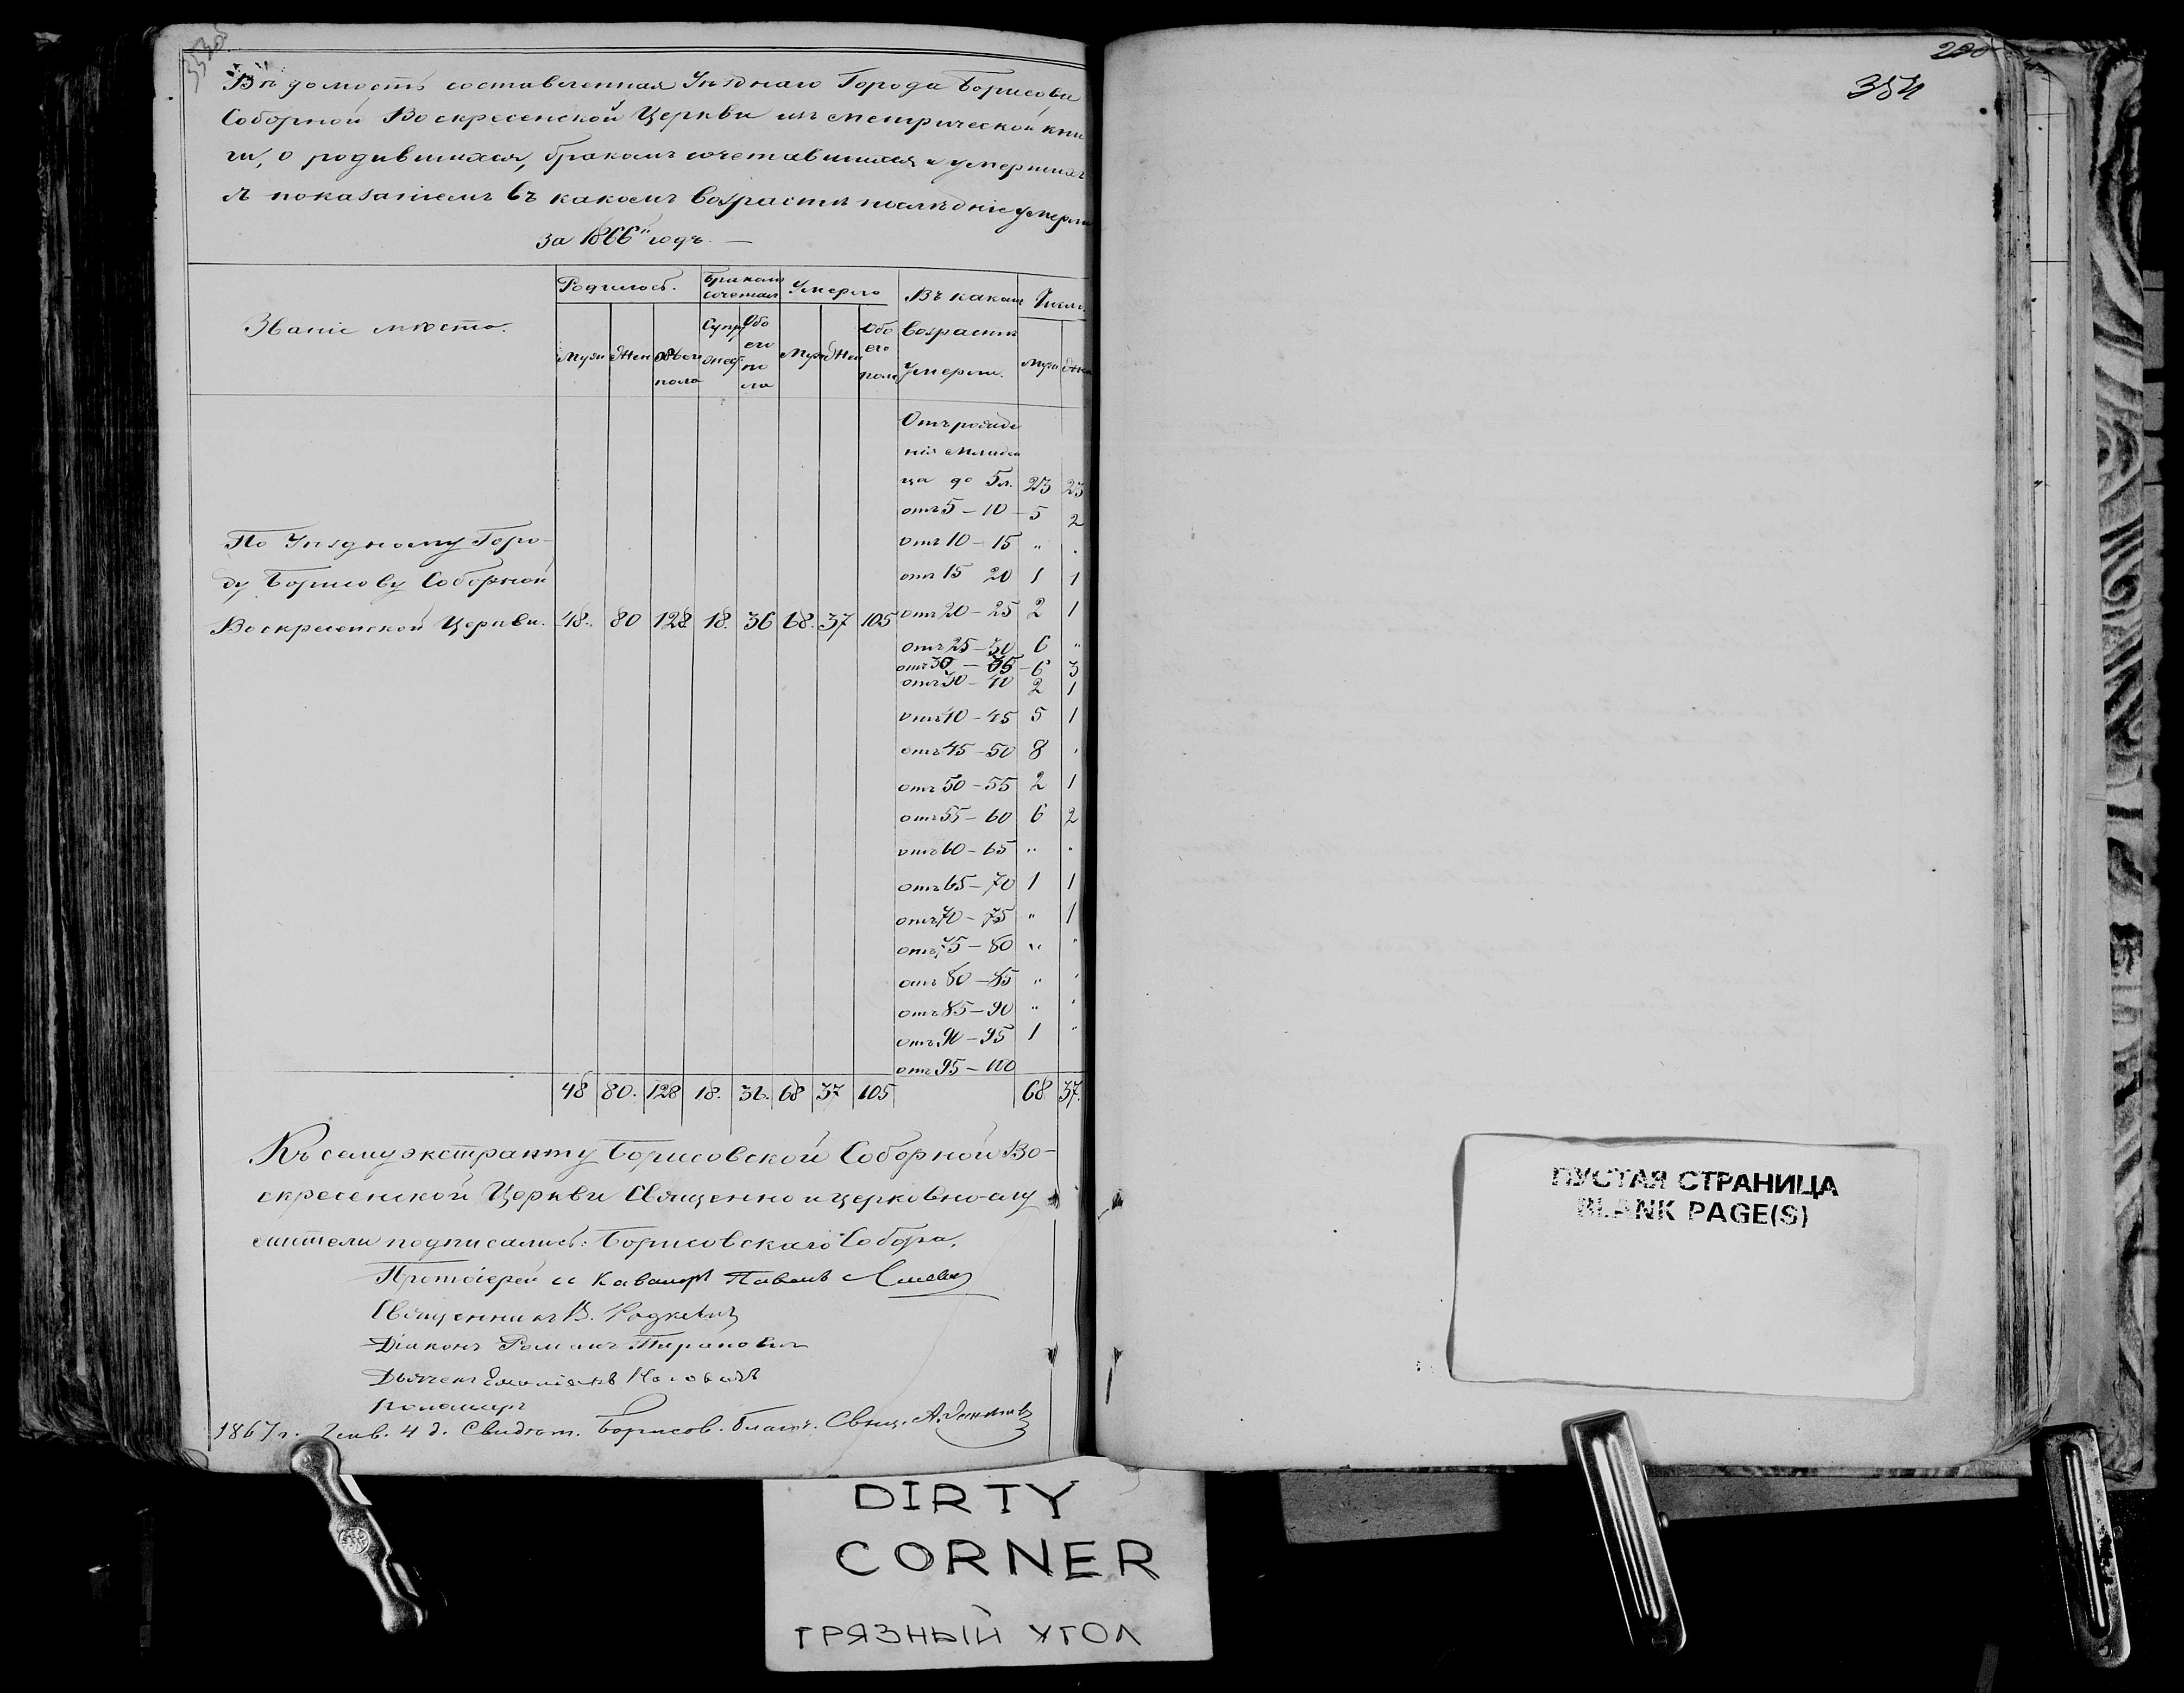 Вѣдомость составленная Уѣзднаго Города Борисова
Соборной Воскресенской Церкви изъ метрической кни
ги, о родившихся, бракомъ сочетавшихся и умершихъ
съ показаніемъ въ какомъ возрастѣ послѣдніе умерли
за 1866й годъ. —
Званіе мѣста. Родилось. Бракомъ сочетал Умерло Въ какомъ возрастѣ умерли. Число
Муж Жен Обоего пола Супружес. Обоего пола Муж Жен Обоего пола Муж Жен
Отъ рожде
нія младен
ца до 5 л. 23 23
отъ 5 – 10 – 5 2
отъ 10 – 15 " "
отъ 15 20 1 1
По Уѣздному Горо-
ду Борисову Соборной
Воскресенской Церкви. 48. 80 128 18. 36 68. 37 105 отъ 20 – 25 2 1
отъ 25 – 30 6 "
отъ 30 – 35 – 6 3
отъ 30 – 40 2 1
отъ 40 – 45 5 1
отъ 45 – 50 8 "
отъ 50 – 55 2 1
отъ 55 – 60 6 2
отъ 60 – 65 " "
отъ 65 – 70 1 1
отъ 70 – 75 " 1
отъ 75 – 80 " "
отъ 80 – 85 " "
отъ 85 – 90 " "
отъ 90 – 95 1 "
отъ 95 – 100
48 80. 128 18. 36. 68 37 105 68 37.
Къ сему экстракту Борисовской Соборной Во-
скресенской Церкви Священно и церковно-слу
жители подписались: Борисовскаго Собора,
Протоіерей и Кавалеръ Павелъ
Священникъ В. Родкевичъ
Діаконъ Романъ Тарановичъ
Дьячекъ
Пономарь
1867 г. Генв. 4 д. Свидѣт. Борисов. Благоч. Свящ.
200
354
ПУСТАЯ СТРАНИЦА
BLANK PAGE(S)
DIRTY
CORNER
ГРЯЗНЫЙ УГОЛ